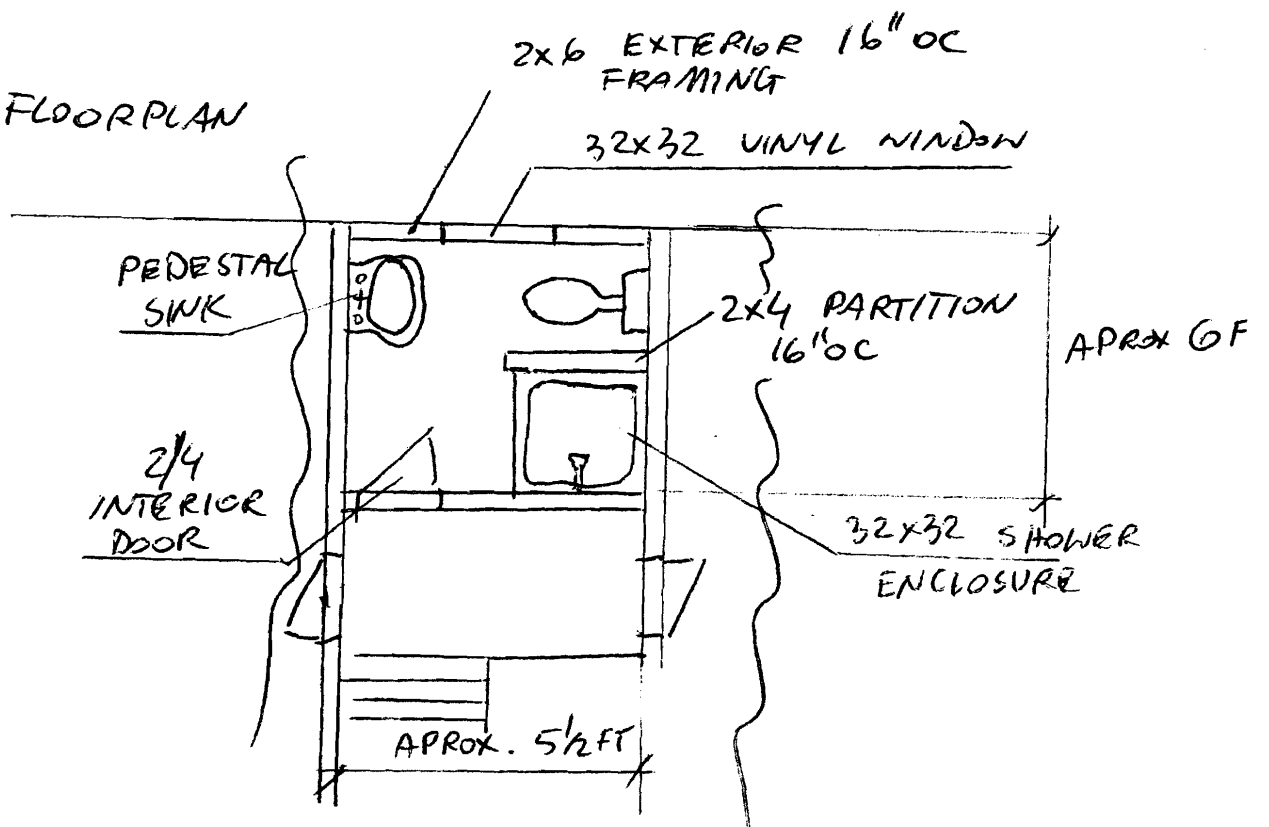 FLOORPLAN
2x6 EXTERIOR 16" OC
FRAMING
32x32 VINYL WINDOW
PEDESTAL
SINK
2x4 PARTITION
16" OC
APROX 6F
2/4
INTERIOR
DOOR
32x32 SHOWER
ENCLOSURE
APROX. 5 1/2 FT